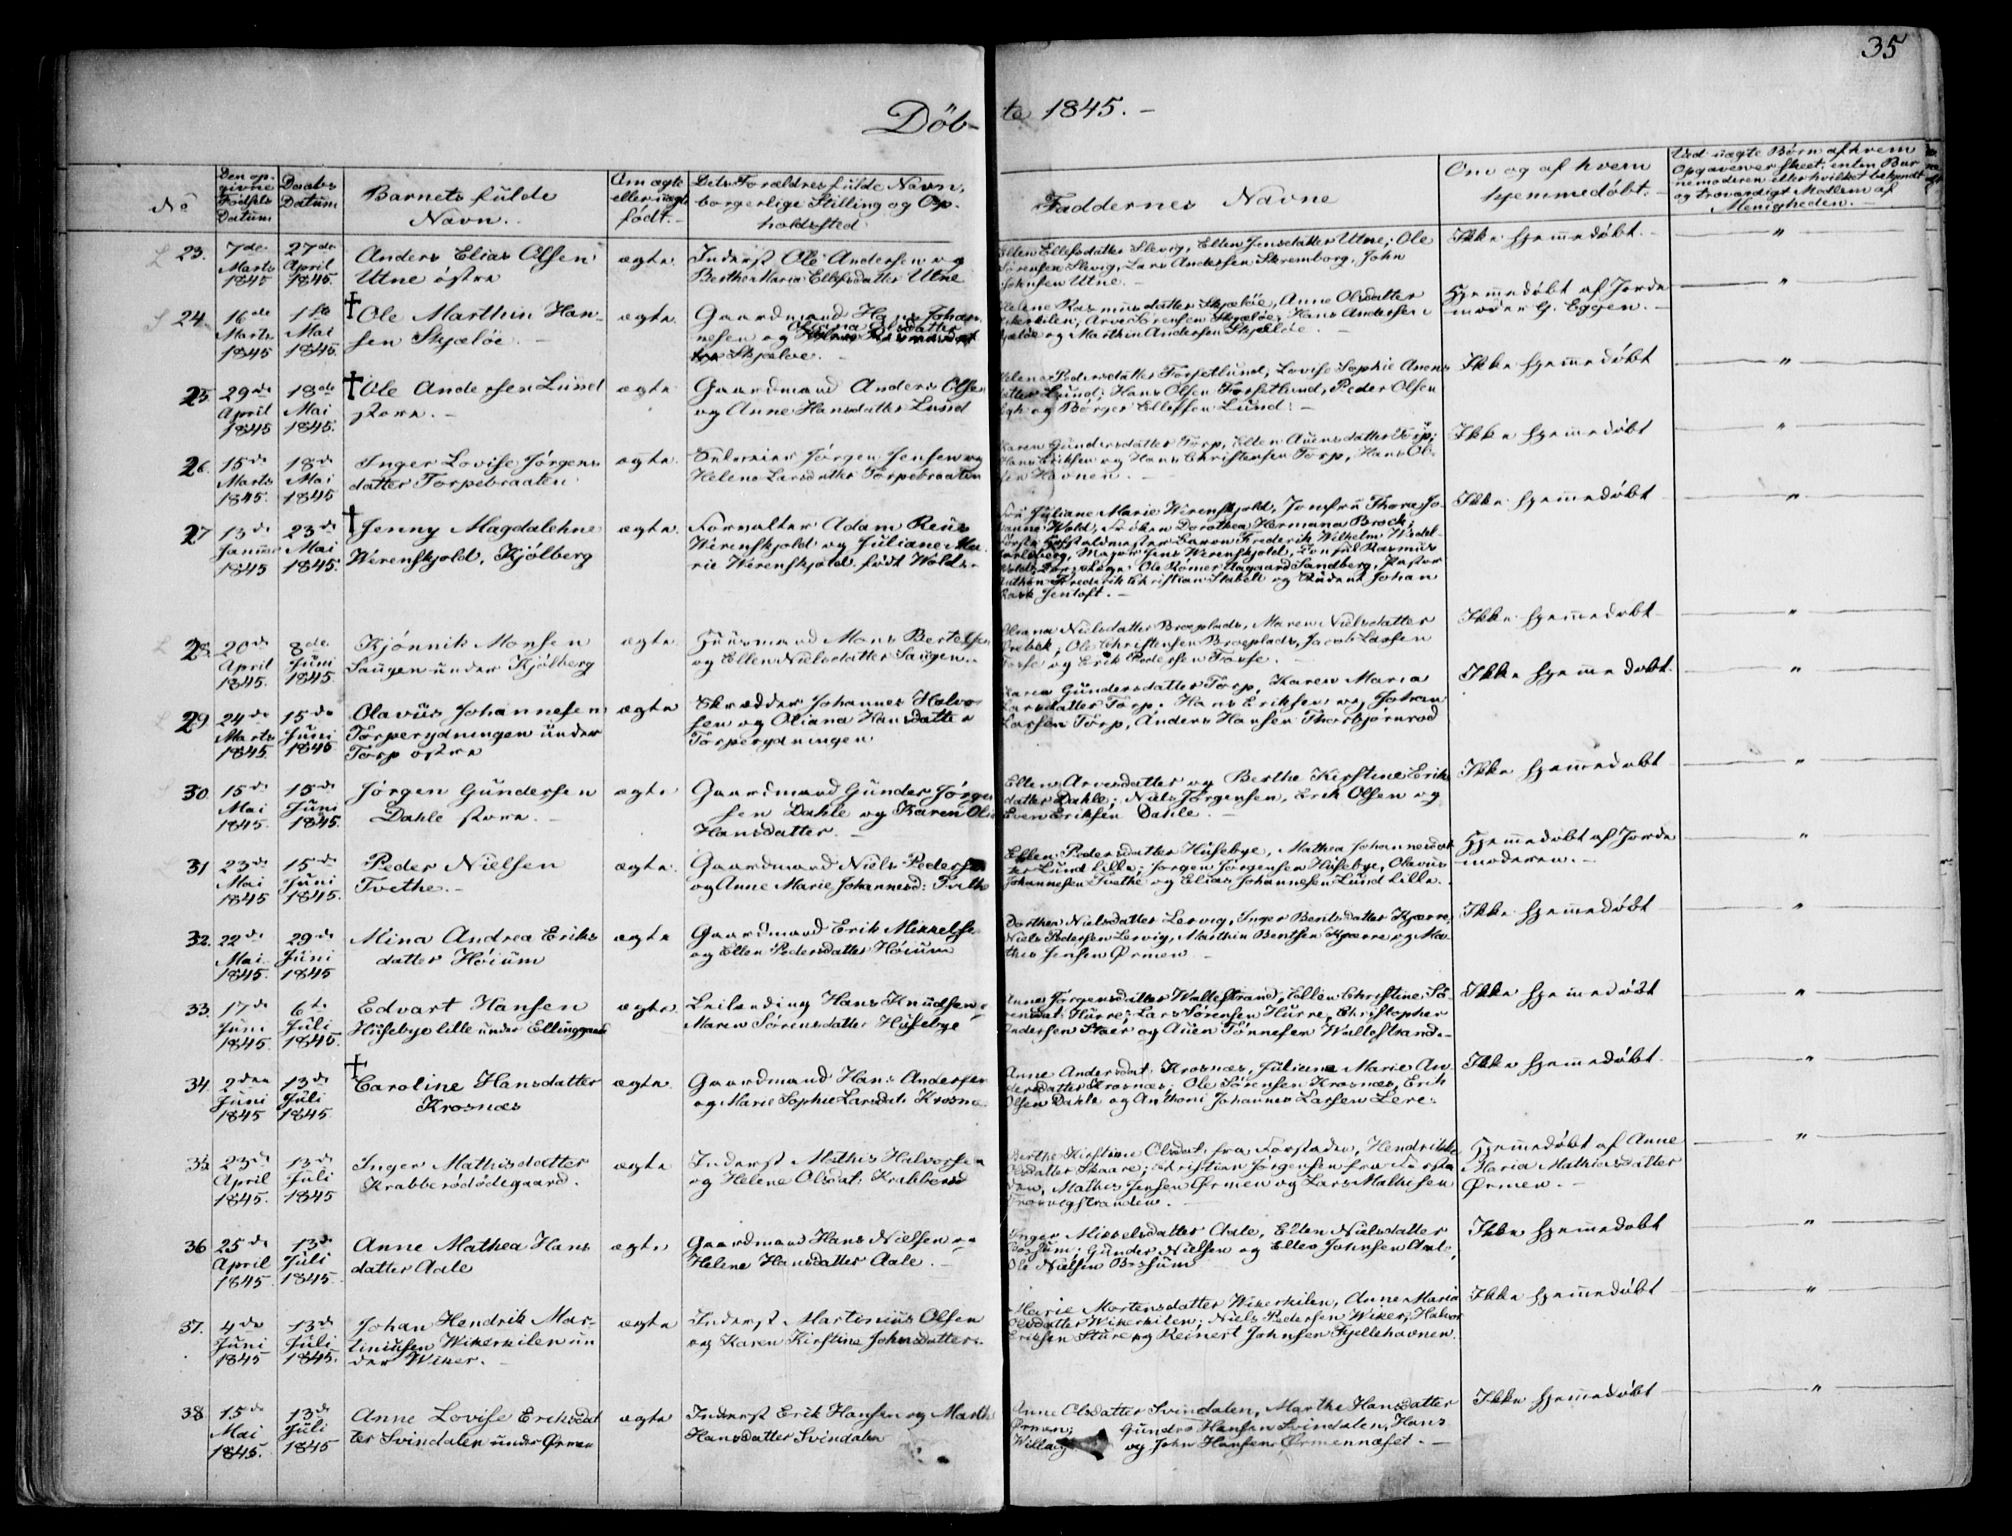 35
Döbte 1845. -
No
Den op-
givne
Fødsels
Datum
Daabs
Datum
Barnets fulde
Navn.
Om ægte
eller uægte
født.
Dets Forældres fulde Navn,
borgerlige Stilling og Op-
holdssted
Faddernes Navne
Om og af hvem
hjemmedøbt.
Ved uægte Børn af hvem
Opgaverne skeet, enten Bar-
nemoderen eller hvilket bekjendt
og troværdigt Medlem af
Menigheden. -
23. 7de Marts 1845
27de April 1845.
Anders Elias Olsen
Utne østre
ægte
Inderst Ole Andersen og
Berthe Maria Ellefsdatter Utne
Ellen Ellefsdatter Slevig, Ellen Jensdatter Utne; Ole
Sørensen Slevig, Lars Andersen Skremborg, John
Johnsen Utne. -
Ikke hjemmedøbt. -
"
24. 16de Marts 1845
1ste Mai 1845.
† Ole Marthin Han-
sen Skjæløe. -
ægte.
Gaardmand Hans Johan-
nesen og Olsdatter
Skjæløe. -
Rasmusdatter Skjæløe, Anne Olsdatter
Sørensen Skjæløe, Hans Andersen
Skjæløe og Marthin Andersen Skjæløe. -
Hjemmedøbt af Jorde-
moder G. Eggen. -
"
25. 29de April 1845
18de Mai 1845.
† Ole Andersen Lund
store. -
ægte
Gaardmand Anders Olsen
og Anne Hansdatter Lund
Helene Pedersdatter Torsetlund, Lovise Sophie Arens-
datter Lund; Hans Olsen Torsetlund, Peder Olsen
og Børger Ellefsen Lund. -
Ikke hjemmedøbt
"
26. 15de Marts 1845.
18de Mai 1845
Inger Lovise Jørgens
datter Torpebraaten
ægte.
Jørgen Jensen og
Helene Larsdatter Torpebraaten
Karen Gundersdatter Torp, Ellen Auensdatter Torp;
Hans Eriksen og Hans Christensen Torp, Hans Ol-
sen Havnen. -
Ikke hjemmedøbt
"
27 13de Januar 1845
23de Mai 1845.
† Jenny Magdalehne
Werenskjold, Kjølberg
ægte
Forvalter Adam Reus
Werenskjold og Juliane Ma-
rie Werenskjold født Wold. -
Fru Juliane Marie Werenskjold, Jomfru Thora Jo-
hanne Wold, Frøken Dorothea Hermana Brock;
Første Hofstaldmester Baron Frederik Wilhelm Wedel-
Jarlsberg, Major Jens Werenskjold, Rasmus
Wold, Ole Rømer Aagaard Sandberg, Pastor
Frederik Christian Stabell og Student Johan
Jentoft. -
Ikke hjemmedøbt
"
28. 20de April 1845.
8de Juni 1845.
Kjønnik Monsen
Saugen under Kjølberg
ægte
Huusmand Mons Bertelsen
og Ellen Nielsdatter Saugen. -
Nielsdatter Bræplads, Maren Nielsdatter
Ole Christensen Bræplads, Jacob Larsen
Torse og Erik Pedersen Torse. -
Ikke hjemmedøbt
"
29 24de Marts 1845.
15de Juni 1845
Olavus Johannesen
Torperydningen under
Torp østre
ægte
Skrædder Johannes Halvor-
sen og Oliana Hansdatter
Torperydningen
Karen Gundersdatter Torp, Karen Maria
Larsdatter Torp. Hans Eriksen og Johan
Larsen Torp, Anders Hansen Thorbjørnrød
Ikke hjemmedøbt
"
30 15de Mai 1845.
15de Juni 1845.
Jørgen Gundersen
Dahle store. -
ægte
Gaardmand Gunder Jørgen-
sen Dahle og Karen
Hansdatter. -
Ellen Arvesdatter og Berthe Kirstine Eriks
datter Dahle; Niels Jørgensen, Erik Olsen og
Even Eriksen Dahle. -
Ikke hjemmedøbt
"
31 23de Mai 1845
15de Juni 1845.
Peder Nielsen
Tvethe. -
ægte.
Gaardmand Niels Pedersen
og Anne Marie Johannesd: Tvethe
Ellen Pedersdatter Husebye, Mathea Johannesdat-
ter Lund lille; Jørgen Jørgensen Husebye, Olavus
Johannesen Tvethe og Elias Johannesen Lund lille.
Hjemmedøbt af Jorde
moderen. -
"
32. 22de Mai 1845.
29de Juni 1845
Mina Andrea Eriks
datter Høium
ægte
Gaardmand Erik Mikkelsen
og Ellen Pedersdatter Høium
Dorthea Nielsdatter Lervig, Inger Bentsdatter Kjærre,
Niels Pedersen Lervig, Marthin Bentsen Kjærre og Ma-
this Jensen Ørmen
Ikke hjemmedøbt
"
33. 17de Juni 1845.
6te Juli 1845.
Edvart Hansen
Husebye lille under Ellinggaard
ægte
Leilending Hans Knudsen
Maren Sørensdatter Husebye
Anne Jørgensdatter Wallestrand, Ellen Christine Sø-
rensdat: Hurre; Lars Sørensen Hurre, Christopher
Andersen Staer og Auen Tønnesen Wallestrand. -
Ikke hjemmedøbt
"
34 2den Juni 1845
13de Juli 1845
† Caroline Hansdatter
Krosnæs
ægte
Gaardmand Hans Andersen
og Marie Sophie Larsdat: Krosnæs
Anne Andersdat: Krosnæs, Juliane Marie An-
dersdatter Krosnæs; Ole Sørensen Krosnæs, Erik
Olsen Dahle og Anthoni Johannes Larsen Lere.
Ikke hjemmedøbt
"
35. 23de April 1845.
13de Juli 1845
Inger Mathisdatter
Krabberødødegaard.
ægte
Inderst Mathis Halvorsen
og Helene Olsdat: Krabberød
Berthe Kirstine Olsdat. fra Forstaden, Hendrikke
Olsdatter Skaare; Christian Jørgensen fra Forsta-
den, Mathis Jensen Ørmen og Lars Mathisen
Trosvigstranden. -
Hjemmedøbt af Anne
Maria Mathiasdatter
Ørmen. -
"
36 25de April 1845.
13de Juli 1845.
Anne Mathea Hans
datter Aale
ægte
Gaardmand Hans Nielsen og
Helene Hansdatter Aale. -
Inger Mikkelsdatter Aale, Ellen Nielsdatter
Bossum; Gunder Nielsen og Ellev Johnsen Aale,
Ole Nielsen Bossum
Ikke hjemmedøbt
"
37. 4de Juni 1845
13de Juli 1845.
Johan Hendrik Mar-
tiniusen Wikerkilen un-
der Wiker. -
ægte
Inderst Martinius Olsen
og Karen Kirstine Johnsdatter. -
Marie Mortensdatter Wikerkilen, Anne Maria
Olsdatter Wikerkilen; Niels Pedersen Wiker, Halvor
Eriksen Sture og Reinert Johnsen Fjellehavnen.
Ikke hjemmedøbt
"
38 15de Mai 1845.
13de Juli 1845
Anne Lovise Eriksdat
ter Svindalen under Ørmen
ægte
Inderst Erik Hansen og Marthe
Hansdatter Svindalen
Anne Olsdatter Svindalen, Marthe Hansdatter
Ørmen; Gunder Hansen Svindalen, Hans
og John Hansen Ørmennæset. -
Ikke hjemmedøbt
"